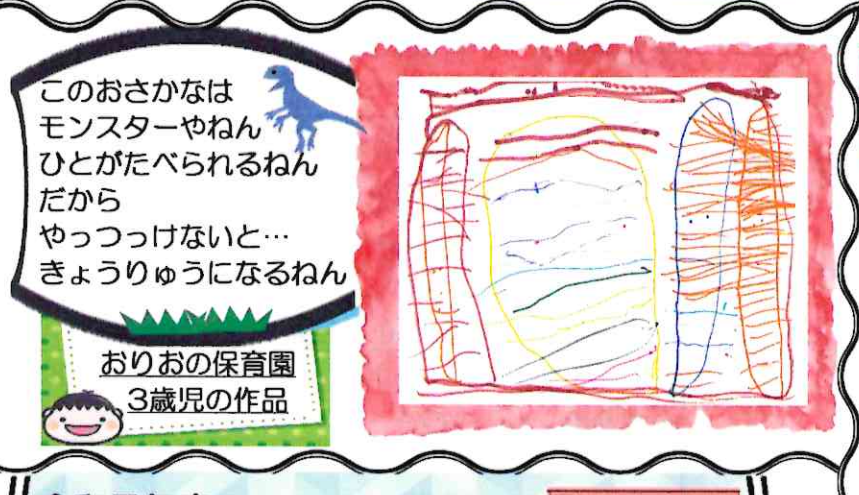 このおさかなは
モンスターやねん
ひとがたべられるねん
だから
やっつっけないと…
きょうりゅうになるねん
おりおの保育園
3歳児の作品